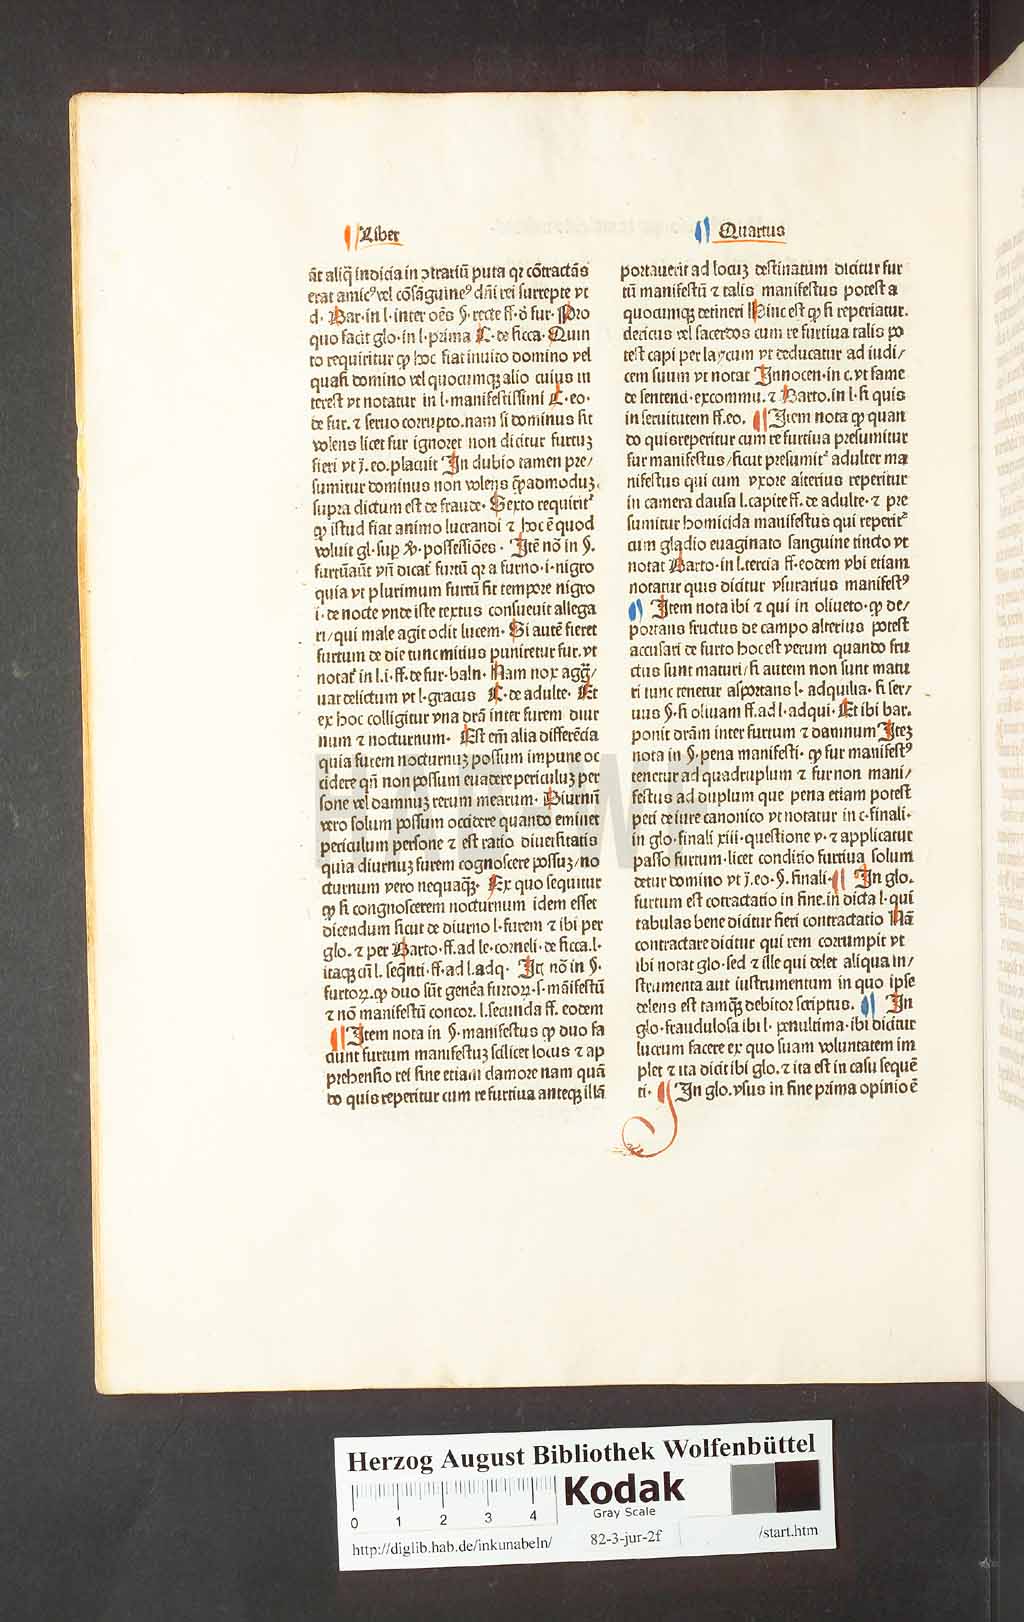 Liber
Quartus
āt aliq̄ indicia in ꝯtrariū puta qꝛ cōtractās
erat amicꝰ vel cōsāguineꝰ dn̄i rei surrepte vt
d. Bar. in l. inter oēs §. recte ff. ð fur. Pro
quo facit glo. in l. prima C. de sicca. Quin
to requiritur ꝙ hoc fiat inuito domino vel
quasi domino vel quocumqꝫ alio cuius in
terest vt notatur in l. manifestissimi C. eo.
de fur. ⁊ seruo corrupto. nam si dominus sit
volens licet fur ignoret non dicitur furtuꝫ
fieri vt j. eo. placuit In dubio tamen pre/
sumitur dominus non volens qp̄admoduꝫ.
supra dictum est de fraude. Sexto requirit᷑
ꝙ istud fiat animo lucrandi ⁊ hoc ē quod
voluit gl. sup̱ possessiōes. Itē nō in §.
furtū aūt vn̄ dicat᷑ furtū qꝛ a furno. i. nigro
quia vt plurimum furtū fit tempore nigro
i. de nocte vnde iste textus consueuit allega
ri/qui male agit odit lucem. Si autē fieret
furtum de die tunc mitius puniretur fur. vt
notat᷑ in l. i. ff. de fur. baln. Nam nox agg̃/
uat delictum vt l. gracus C. de adulte. Et
ex hoc colligitur vna dr̄ā inter furem diur
num ⁊ nocturnum. Est em̄ alia differēcia
quia furem nocturnuꝫ possum impune oc
cidere qn̄ non possum euadere periculuꝫ per
sone vel damnuꝫ rerum mearum. Diurnū
vero solum possum occidere quando eminet
periculum persone ⁊ est ratio diuersitatis
quia diurnuꝫ furem cognoscere possuꝫ/no
cturnum vero nequaq̄ꝫ. Ex quo sequitur
ꝙ si congnoscerem nocturnum idem esset
dicendum sicut de diurno l. furem ⁊ ibi per
glo. ⁊ per Barto. ff. ad le. corneli. de sicca. l.
itaqꝫ cū l. seq̄nti. ff. ad l. adq. Itē nō in §.
furtoꝝ. ꝙ duo sūt gen̄a furtoꝝ. s. māifestū
⁊ nō manifestū concor. l. secunda ff. eodem
Item nota in §. manifestus ꝙ duo fa
ciunt furtum manifestuꝫ scilicet locus ⁊ ap
prehensio rei sine etiam clamore nam quā
do quis reperitur cum re furtiua anteqꝫ illā
portauerit ad locuꝫ destinatum dicitur fur
tū manifestū ⁊ talis manifestus potest a
quocumqꝫ detineri Hinc est ꝙ si reperiatur.
clericus vel sacerdos cum re furtiua talis po
test capi per laycum vt deducatur ad iudi/
cem suum vt notat Innocen. in c. vt fame
de sentencī. excommu. ⁊ Barto. in l. si quis
in seruitutem ff. eo. Item nota ꝙ quan
do quis reperitur cum re furtiua presumitur
fur manifestus/sicut presumit᷑ adulter ma
nifestus qui cum vxore alterius reperitur
in camera clausa l. capite ff. de adulte. ⁊ pre
sumitur homicida manifestus qui reperit᷑
cum gladio euaginato sanguine tincto vt
notat Barto. in l. tercia ff. eodem vbi etiam
notatur quis dicitur vsurarius manifestꝰ
Item nota ibi ⁊ qui in oliueto. ꝙ de/
portans fructus de campo alterius potest
accusari de furto hoc est verum quando fru
ctus sunt maturi/si autem non sunt matu
ri tunc tenetur asportans l. adquilia. si ser/
uus §. si oliuam ff. ad l. adqui. Et ibi bar.
ponit dr̄ām inter furtum ⁊ damnum Iteꝫ
nota in §. pena manifesti. ꝙ fur manifestꝰ
tenetur ad quadruplum ⁊ fur non mani/
festus ad duplum que pena etiam potest
peti de iure canonico vt notatur in c. finali.
in glo. finali xiii. questione v. ⁊ applicatur
passo furtum. licet conditio furtiua solum
detur domino vt j. eo. §. finali. In glo.
furtum est cotractatio in fine. in dicta l. qui
tabulas bene dicitur fieri contractatio Nā
contractare dicitur qui rem corrumpit vt
ibi notat glo. sed ⁊ ille qui delet aliqua in/
strumenta aut iustrumentum in quo ipse
delens est tamq̄ꝫ debitor scriptus. In
glo. fraudulosa ibi l. penultima. ibi dicitur
lucrum facere ex quo suam voluntatem im
plet ⁊ ita dicit ibi glo. ⁊ ita est in casu sequē
ti. In glo. vsus in fine prima opinio ē
HAB-WF
Herzog August Bibliothek Wolfenbüttel
0 1 2 3 4
Kodak
Gray Scale
http://diglib.hab.de/inkunabeln/ 82-3-jur-2f /start.htm